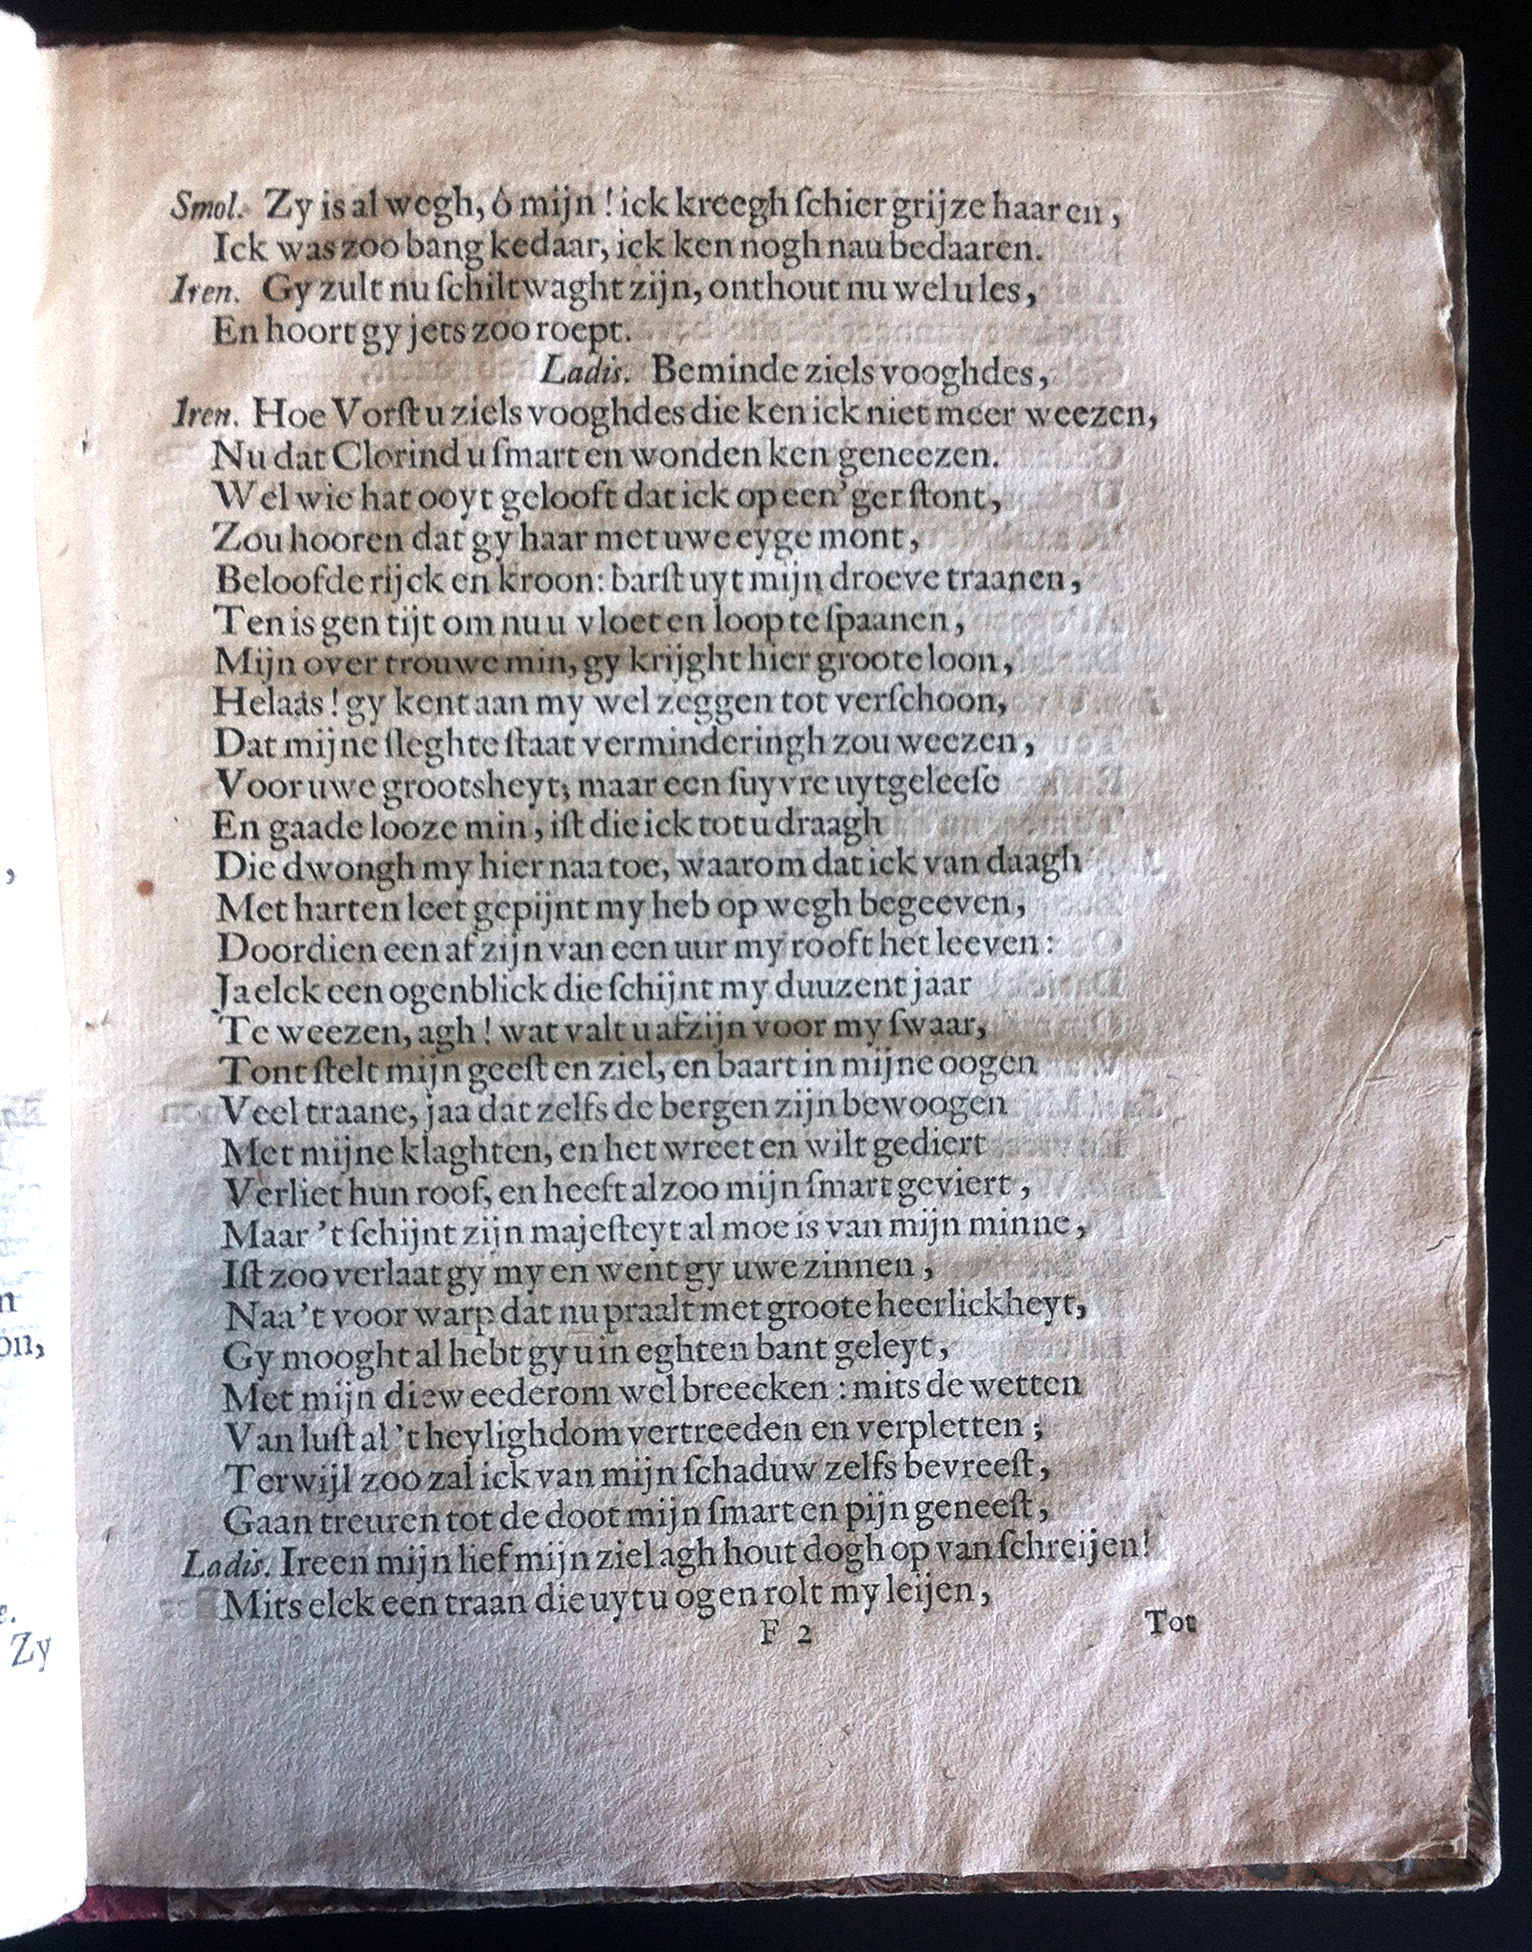 Smol. Zy is al wegh, ô mijn! ick kreegh ſchier grijze haaren,
Ick was zoo bang kedaar, ick ken nogh nau bedaaren.
Iren. Gy zult nu ſchiltwaght zijn, onthout nu wel u les,
En hoort gy jets zoo roept.
Ladis. Beminde ziels vooghdes,
Iren. Hoe Vorſt u ziels vooghdes die ken ick niet meer weezen,
Nu dat Clorind u ſmart en wonden ken geneezen.
Wel wie hat ooyt gelooft dat ick op een'ger ſtont,
Zou hooren dat gy haar met uwe eyge mont,
Beloofde rijck en kroon: barſt uyt mijn droeve traanen,
Ten is gen tijt om nu u vloet en loop te ſpaanen,
Mijn over trouwe min, gy krijght hier groote loon,
Helaas! gy kent aan my wel zeggen tot verſchoon,
Dat mijne ſleghte ſtaat verminderingh zou weezen,
Voor uwe grootsheyt; maar een ſuyvre uytgeleeſe
En gaade looze min, iſt die ick tot u draagh
Die dwongh my hier naa toe, waarom dat ick van daagh
Met harten leet gepijnt my heb op wegh begeeven,
Doordien een af zijn van een uur my rooft het leeven:
Ja elck een ogenblick die ſchijnt my duuzent jaar
Te weezen, agh! wat valt u afzijn voor my ſwaar,
Tont ſtelt mijn geeſt en ziel, en baart in mijne oogen
Veel traane, jaa dat zelfs de bergen zijn bewoogen
Met mijne klaghten, en het wreet en wilt gediert
Verliet hun roof, en heeft al zoo mijn ſmart geviert,
Maar 't ſchijnt zijn majeſteyt al moe is van mijn minne,
Iſt zoo verlaat gy my en went gy uwe zinnen,
Naa 't voor warp dat nu praalt met groote heerlickheyt,
Gy mooght al hebt gy u in eghten bant geleyt,
Met mijn die weederom wel breecken: mits de wetten
Van luſt al 't heylighdom vertreeden en verpletten;
Terwijl zoo zal ick van mijn ſchaduw zelfs bevreeſt,
Gaan treuren tot de doot mijn ſmart en pijn geneeſt,
Ladis. Ireen mijn lief mijn ziel agh hout dogh op van ſchreijen!
Mits elck een traan die uyt u ogen rolt my leijen,
F 2 Tot
on,
Zy